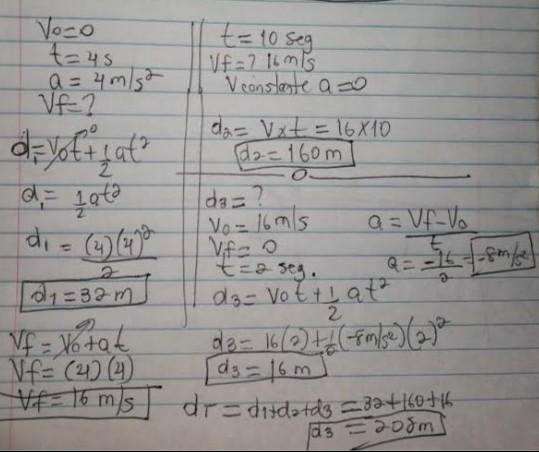 Vo=0
t=4s
a=4m/s²
Vf=?
d₁=Vot+½at² 0
d₁=½at²
d₁=(4)(4)²/2
d1=32m
Vf=Vo+at
Vf=(4)(4)
Vf=16m/s
t=10 seg
Vf=? 16m/s
Vconstante a=0
d2=Vxt=16x10
d2=160m
0
d3=?
Vo=16m/s
Vf=0
t=2seg.
a=Vf-Vo/t
a=-16/2=-8m/s²
d3=Vot+½at²
d3=16(2)+½(-8m/s²)(2)²
d3=16m
dT=d1+d2+d3=32+160+16
d3=208m